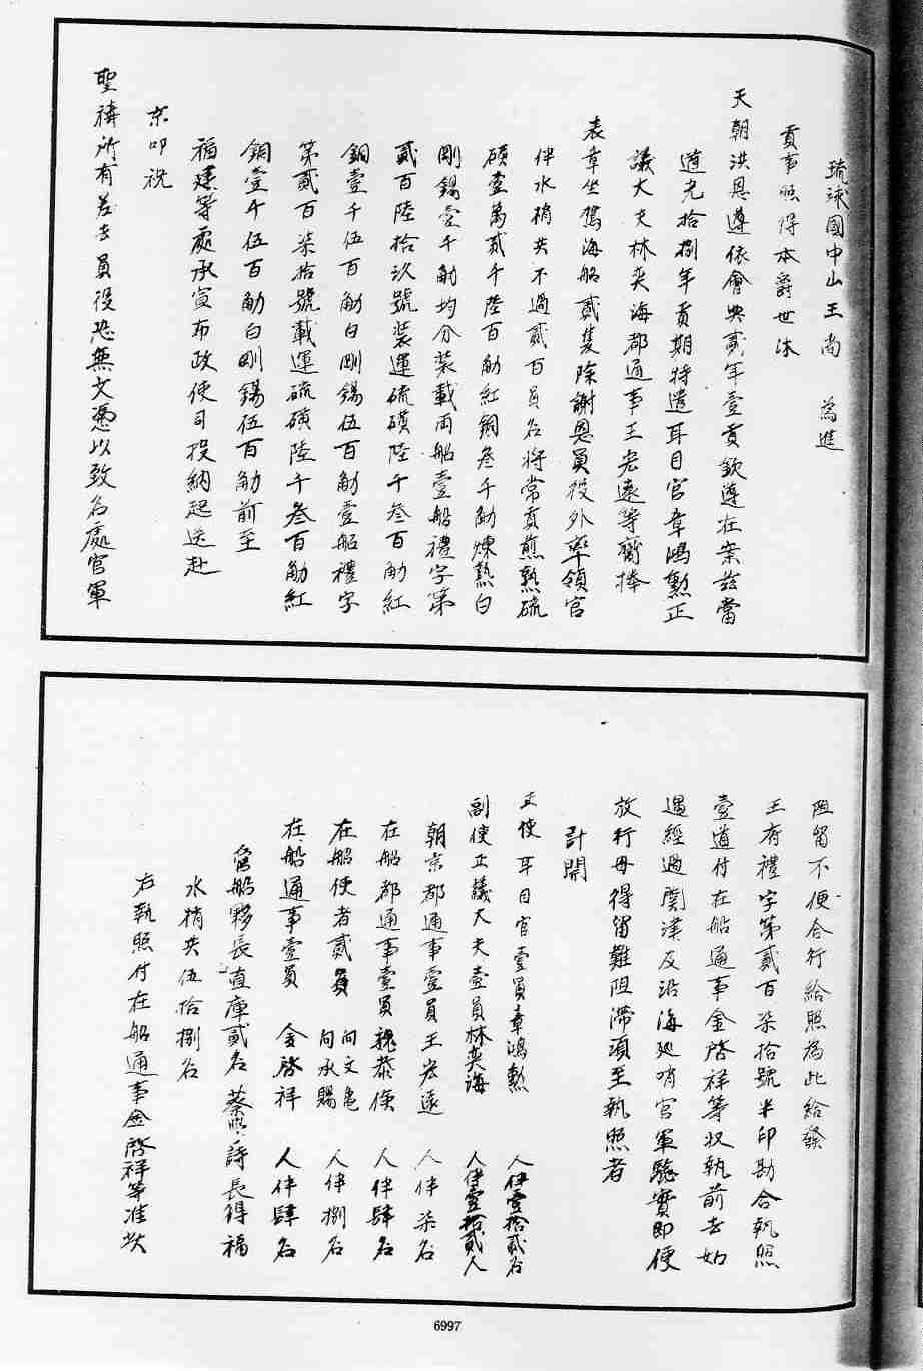 琉球國中山王尚 為進
貢事照得本爵世沐
天朝洪恩遵依會典貳年壹貢欽遵在案茲當
道光拾捌年貢期特遣耳目官章鴻勲正
議大夫林奕海都通事王宏遠等齎捧
表章坐駕海船貳隻除謝恩員役外率領官
伴水梢共不過貳百員名將常貢煎熟硫
磺壹萬貳千陸百觔紅銅叁千觔煉熟白
剛錫壹千觔均分裝載兩船壹船禮字第
貳百陸拾玖號裝運硫磺陸千叁百觔紅
銅壹千伍百觔白剛錫伍百觔壹船禮字
第貳百柒拾號載運硫磺陸千叁百觔紅
銅壹千伍百觔白剛錫伍百觔前至
福建等處承宣布政使司投納起送赴
京叩祝
聖禧所有差去員役恐無文憑以致各處官軍
阻留不便合行給照為此給發
王府禮字第貳百柒拾號半印勘合執照
壹道付在船通事金啓祥等收執前去如
遇經過關津及沿海巡哨官軍驗實即便
放行毋得留難阻滯須至執照者
計開
正使耳目官壹員章鴻勲 人伴壹拾貳名
副使正議大夫壹員林奕海 人伴壹拾貳人
朝京都通事壹員王宏遠 人伴柒名
在船都通事壹員魏恭儉 人伴肆名
在船使者貳員 向文亀 向承賜 人伴捌名
在船通事壹員 金啓祥 人伴肆名
管船夥長直庫貳名 蔡照詩 長得福
水梢共伍拾捌名
右執照付在船通事金啓祥等准此
6997